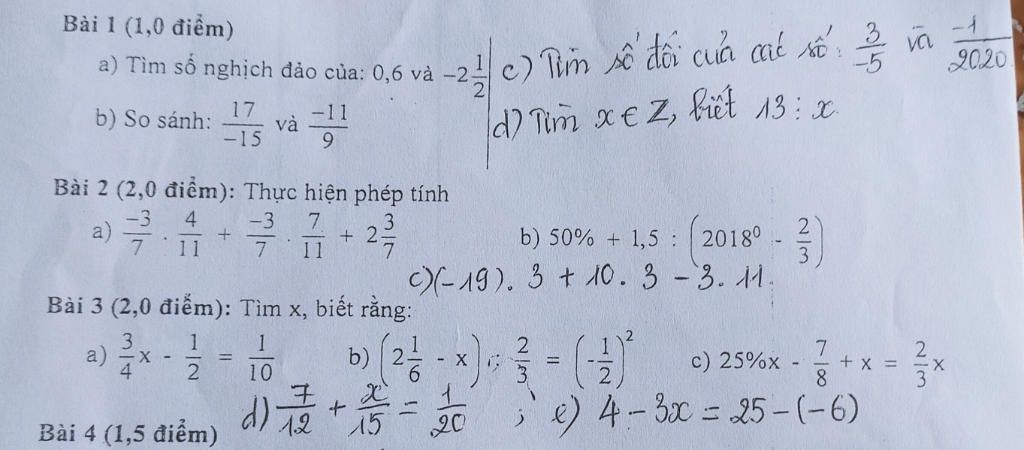 Bài 1 (1,0 điểm)
a) Tìm số nghịch đảo của: 0,6 và -2 1/2
c) Tìm số đối của các số: 3/-5 và -1/2020
b) So sánh: 17/-15 và -11/9
d) Tìm x ∈ Z, biết 13 ⋮ x.
Bài 2 (2,0 điểm): Thực hiện phép tính
a) -3/7 . 4/11 + -3/7 . 7/11 + 2 3/7
b) 50% + 1,5 : (2018⁰ - 2/3)
c) (-19). 3 + 10. 3 - 3. 11.
Bài 3 (2,0 điểm): Tìm x, biết rằng:
a) 3/4 x - 1/2 = 1/10
b) (2 1/6 - x) : 2/3 = (-1/2)²
c) 25%x - 7/8 + x = 2/3 x
d) 7/12 + x/15 = 1/20 ;
e) 4 - 3x = 25 - (-6)
Bài 4 (1,5 điểm)